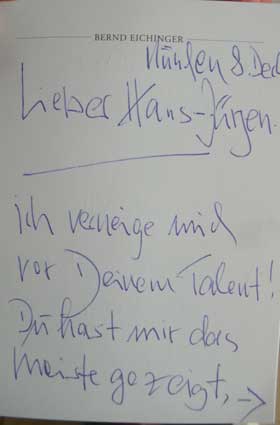 BERND EICHINGER
München 8. Dez
Lieber Hans-Jürgen.
ich verneige mich
vor Deinem Talent!
Du hast mir das
meiste gezeigt, →